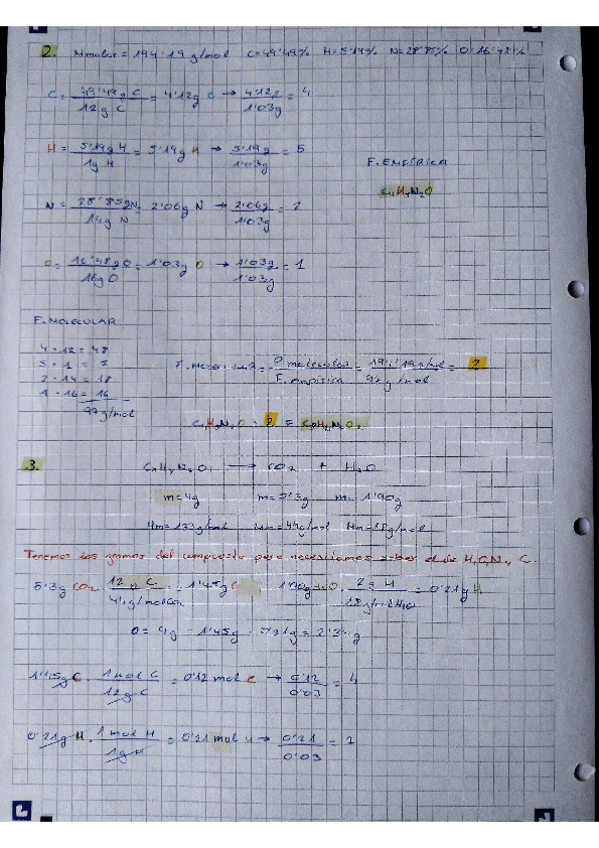 2. Mmolar = 194'19 g/mol C=49'49% H=5'19% N=28'85% O=16'48%
C = 49'49g C / 12g C = 4'12g C → 4'12g / 1'03g = 4
H = 5'19g H / 1g H = 5'19g H → 5'19g / 1'03g = 5
F. EMPÍRICA
C4H5N2O
N = 28'85g N / 14g N = 2'06g N → 2'06g / 1'03g = 2
O = 16'48g O / 16g O = 1'03g O → 1'03g / 1'03g = 1
F. MOLECULAR
4 · 12 = 48
5 · 1 = 5
2 · 14 = 28
1 · 16 = 16
97g/mol
F. MOLECULAR = molecular / F. empírica = 194'19 g/mol / 97 g/mol = 2
C4H5N2O · 2 =
3. → CO2 + H2O
m=4g m=5'3g m=1'90g
Mm=44g/mol Mm=18g/mol
Tenemos los gramos del compuesto pero necesitamos saber el de H, O, N y C.
5'3g CO2 · 12 g C / 44g/mol CO2 = 1'45g C 1'90g H2O · 2g H / 18g/mol H2O = 0'21g H
O = 4g - 1'45g - 0'21g = 2'34g
1'45g C · 1 mol C / 12g C = 0'12 mol C → 0'12 / 0'03 = 4
0'21g H · 1 mol H / 1g H = 0'21 mol H → 0'21 / 0'03 =